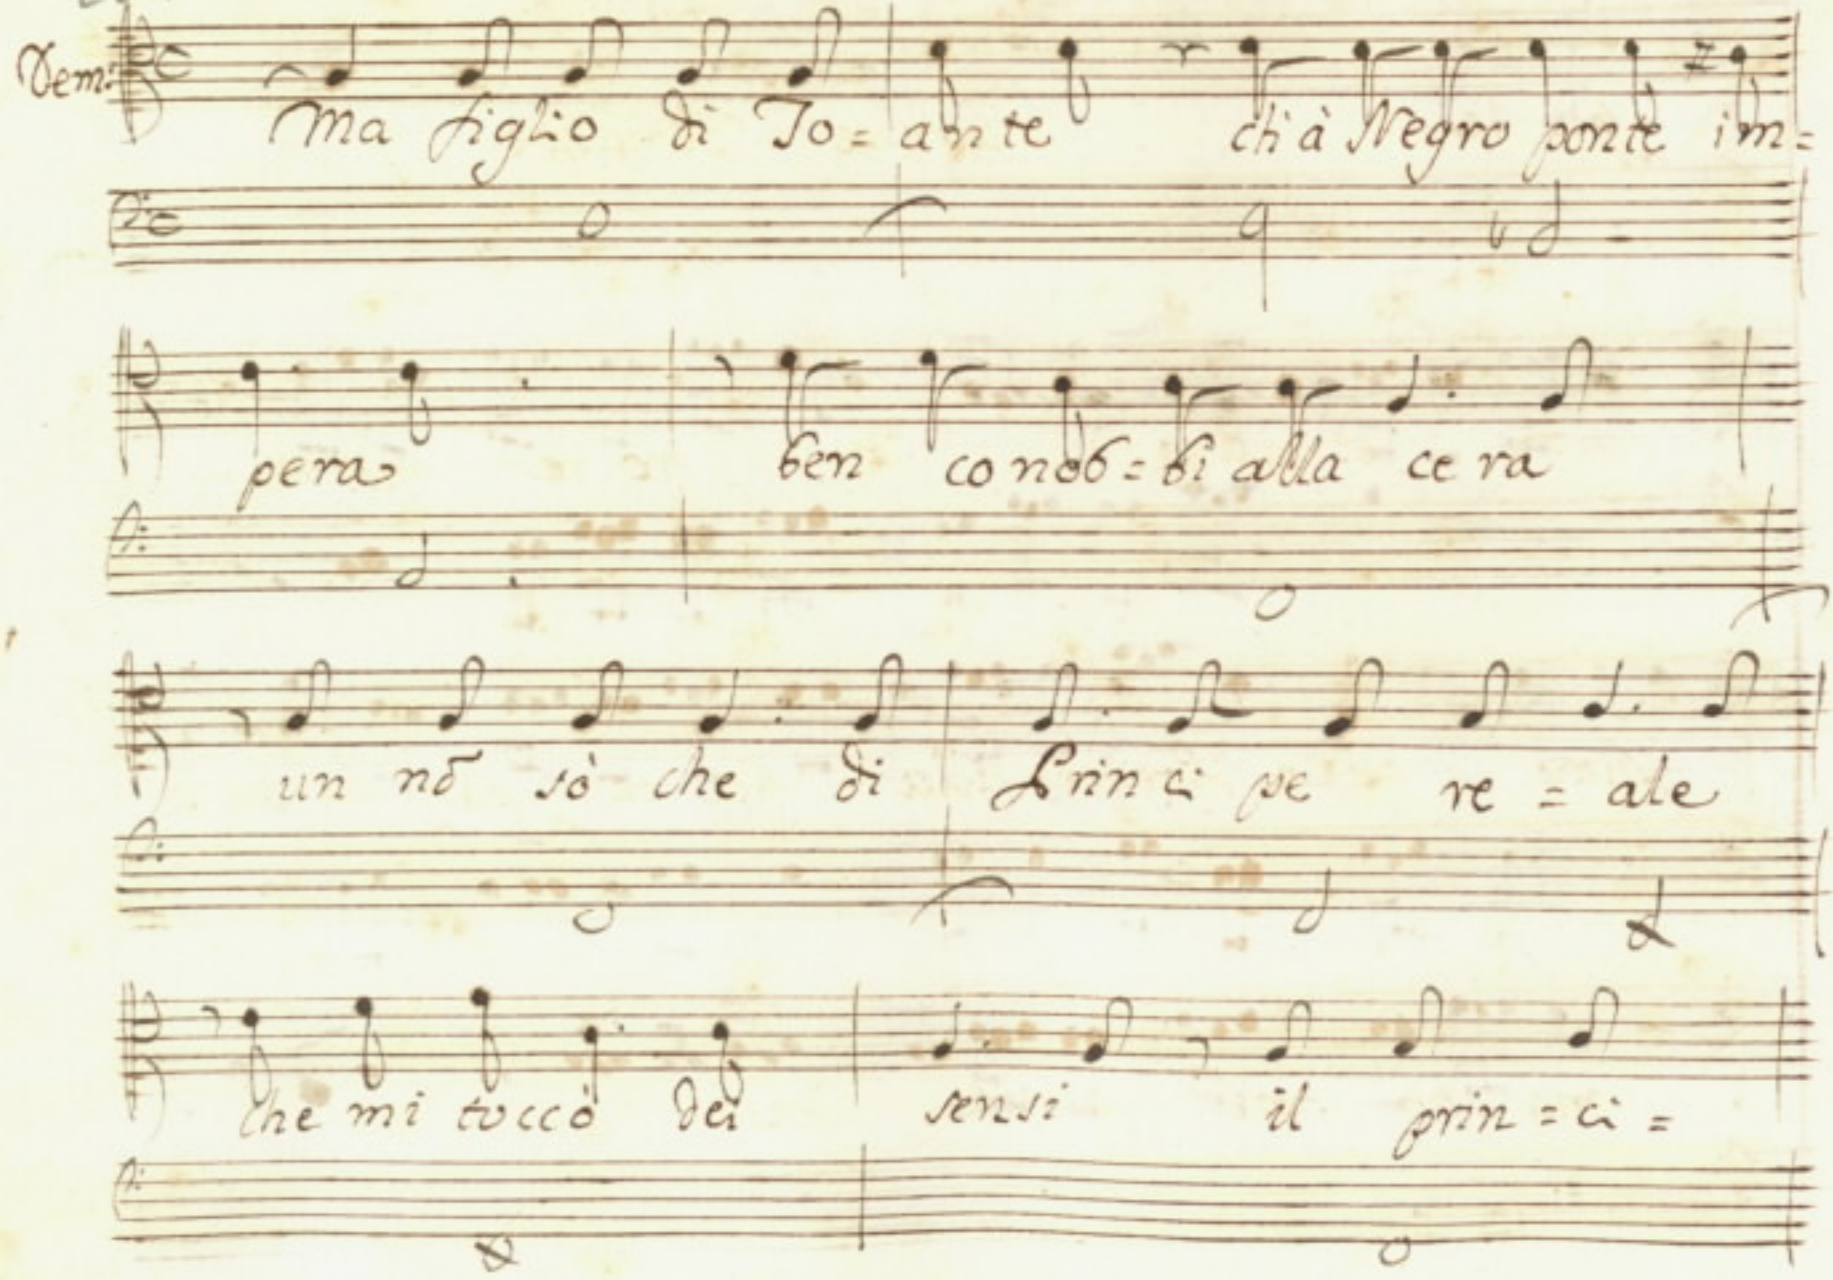 Dem: Ma figlio di To=ante ch'à Negro ponte im=
pera ben conob=bi alla cera
un nō sò che di Principe re=ale
che mi toccò dei sensi il prin=ci=